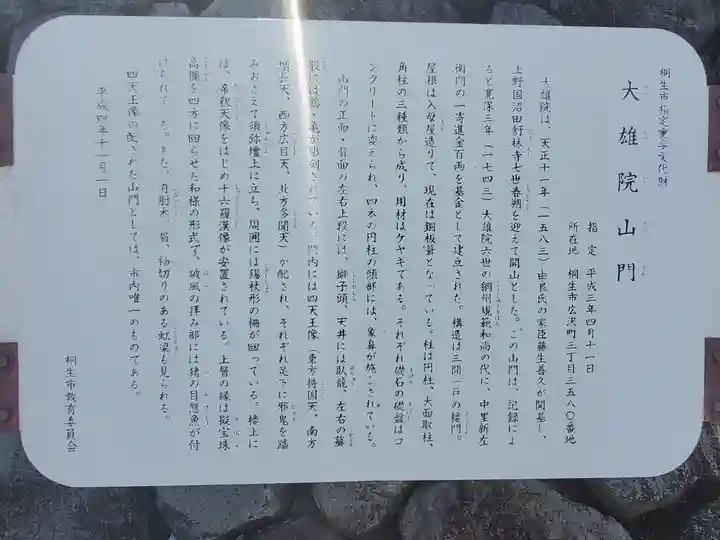 桐生市指定重要文化財
大雄院山門
指定 平成三年四月十一日
所在地 桐生市広沢町三丁目三五八〇番地
大雄院は、天正十一年（一五八三）由良氏の家臣藤生善久が開基し、
上野国沼田舒林寺七世春朔を迎えて開山とした。この山門は、記録によ
ると寛保三年（一七四三）大雄院六世の綱州規範和尚の代に、中里新左
衛門の一寄進金百両を基金として建立された。構造は三間一戸の楼門。
屋根は入母屋造りで、現在は銅板葺となっている。柱は円柱、大面取柱、
角柱の三種類から成り、用材はケヤキである。それぞれ礎石の礎盤はコ
ンクリートに変えられ、四本の円柱の頭部には、象鼻が施こされている。
山門の正面・背面の左右上段には、獅子頭、天井には臥龍、左右の蟇
股には鶴・亀が彫刻されている。門内には四天王像（東方持国天、南方
増長天、西方広目天、北方多聞天）が配され、それぞれ足下に邪鬼を踏
みおさえて須弥壇上に立ち、周囲には錫杖形の柵が回っている。楼上に
は、帝釈天像をはじめ十六羅漢像が安置されている。上層の縁は擬宝珠
高欄を四方に回らせた和様の形式で、破風の拝み部には猪の目懸魚が付
けられて る。また、舟肘木 眉、袖切りのある虹梁も見られる。
四天王像の配された山門としては、市内唯一のものである。
平成四年十一月一日
桐生市教育委員会